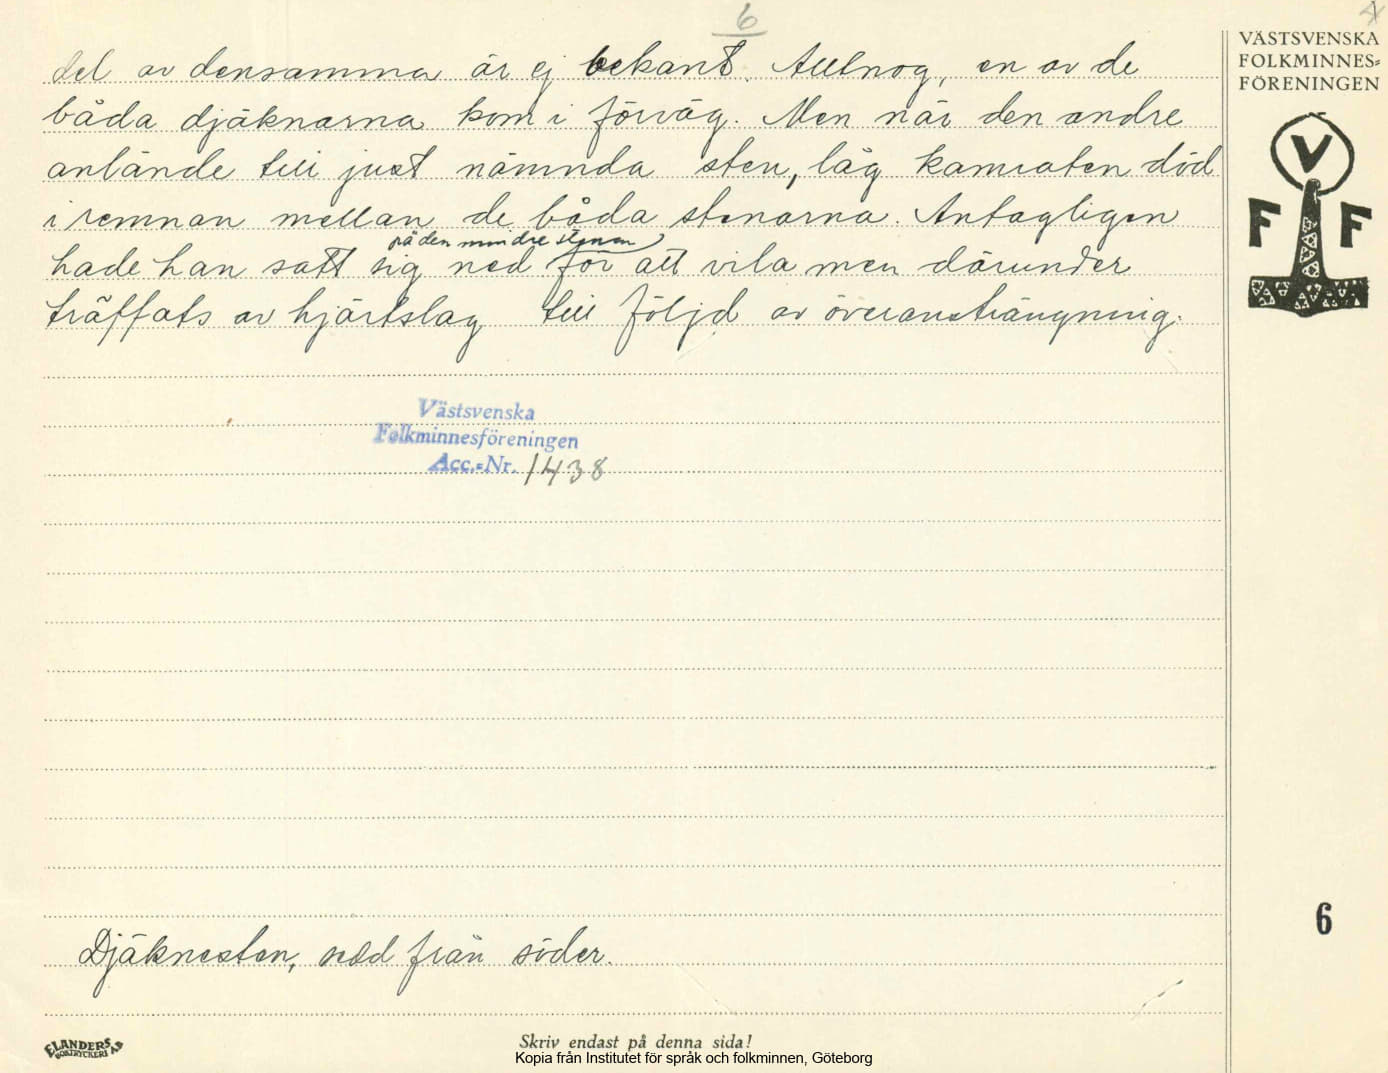 6
del av densamma är ej bekant. Alltnog, en av de
båda djäknarna kom i förväg. Men när den andre
anlände till just nämnda sten, låg kamraten död
i remnan mellan de båda stenarna. Antagligen
på den mindre stenen
hade han satt sig ned för att vila men därunder
träffats av hjärtslag till följd av överansträngning.
Västsvenska
Folkminnesföreningen
Acc.-Nr. 1438
Djäknesten, sedd från söder.
ELANDERS
BOKTRYCKERI AB
Skriv endast på denna sida!
Kopia från Institutet för språk och folkminnen, Göteborg
VÄSTSVENSKA
FOLKMINNES-
FÖRENINGEN
V
F F
6